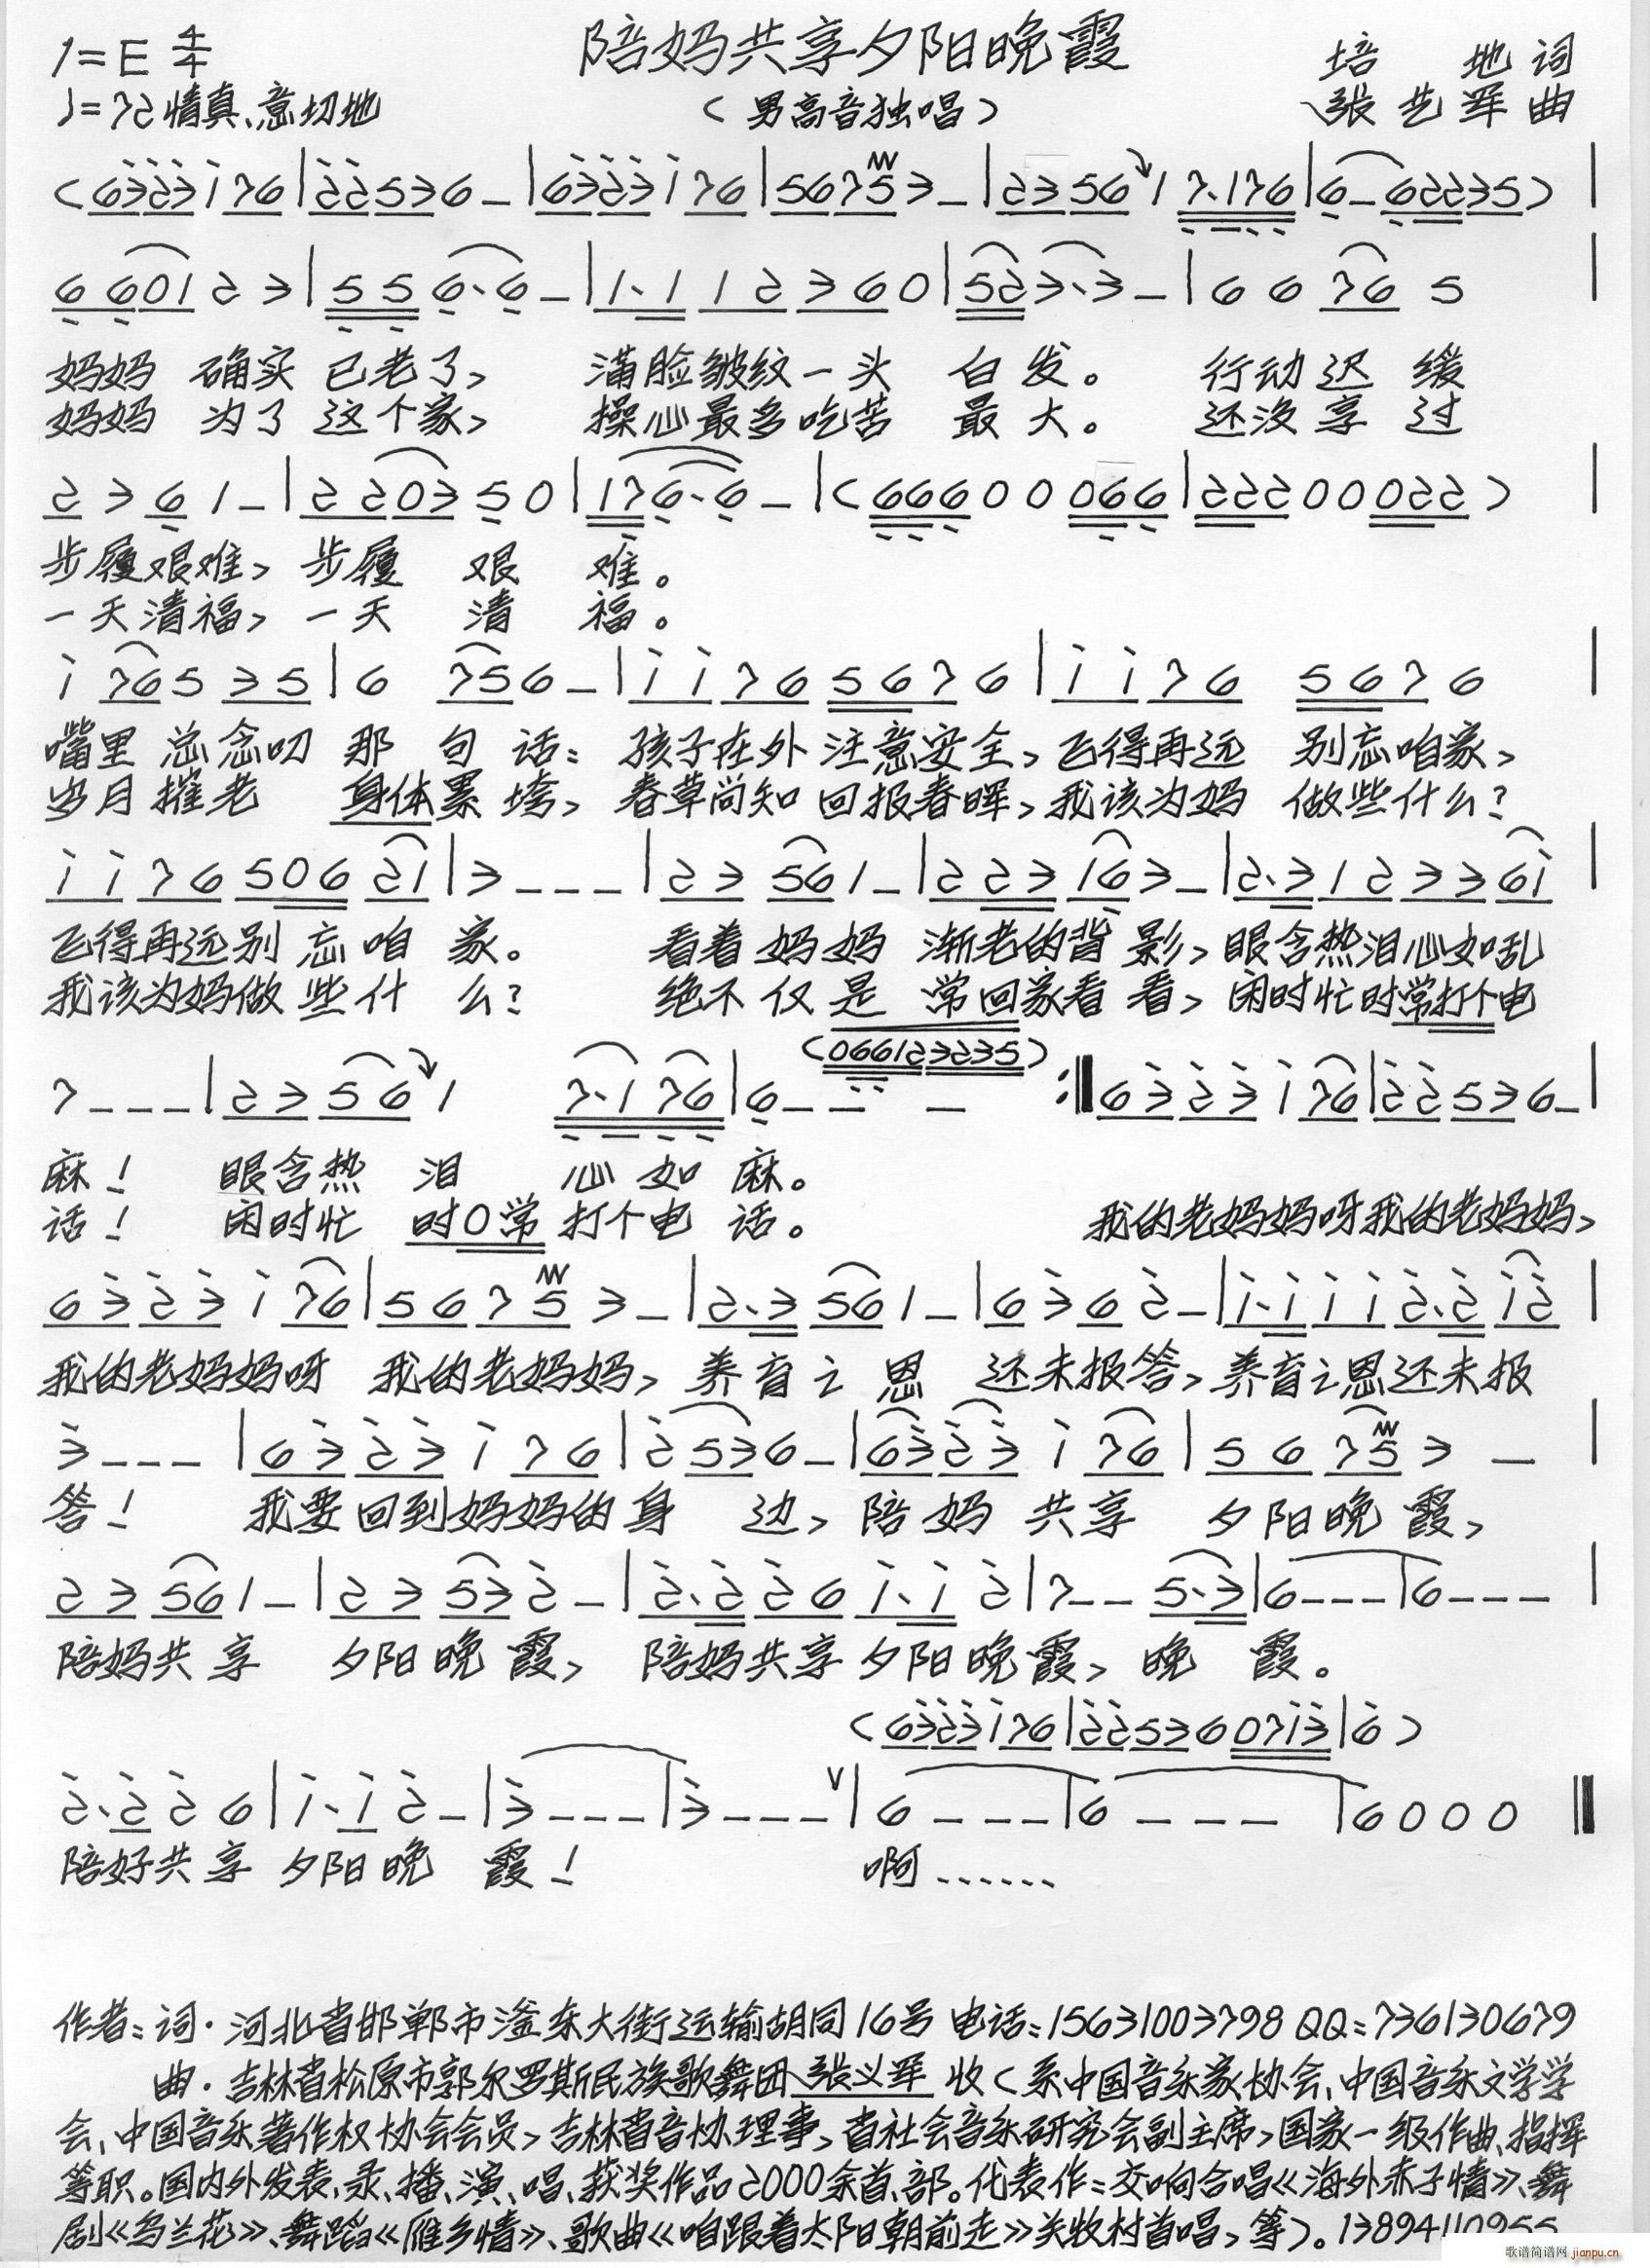 陪妈共享夕阳晚霞
1=E 4/4
培 地 词
♩=72 情真、意切地
（男高音独唱）
张艺军 曲
(6323176|22536_|6323176|56753_|23561 7.176|6_62235)|
660123|556.6_|1.112360|523.3_|6676 5|
妈妈 确实 已老了， 满脸皱纹一头 白发。 行动迟 缓
妈妈 为了 这个家， 操心最多吃苦 最大。 还没享 过
2361_|220350|176.6_|(66600066|22200022)|
步履艰难，步履 艰 难。
一天清福，一天 清 福。
176535|6 756_|11765676|1176 5676|
嘴里 总念叨 那 句 话：孩子在外 注意安全，飞得再远 别忘咱家，
岁月摧老 身体累垮，春草尚知 回报春晖，我该为妈 做些什么？
117650621|3___|23561_|223163_|2.3123361|
飞得再远别 忘咱 家。 看着妈妈 渐老的背 影，眼含热泪心如乱
我该为妈做 些什 么？ 绝不仅是 常回家看 看，闲时忙时常打个电
(066123235)
7___|23561 7.176|6___:‖6323176|22536_|
麻！ 眼含热 泪 心如 麻。
话！ 闲时忙 时0常 打个电 话。 我的老妈妈呀我的老妈妈，
6323176|56753_|2.3561_|6362_|1.1112.212|
我的老妈妈呀 我的老妈妈，养育之 恩 还未报答，养育之恩还未报
3___|6323176|2536_|6323176|56753_|
答！ 我要回到妈妈的身 边，陪妈 共享 夕阳晚 霞，
23561_|23532_|2.2261.12|7__5.3|6___|6___|
陪妈共享 夕阳晚 霞， 陪妈共享夕阳晚霞，晚 霞。
(6323176|225360713|6)
2.226|1.12_|3___|3___∨|6___|6___|6000‖
陪好共享 夕阳晚 霞！ 啊……
作者：词·河北省邯郸市滏东大街运输胡同16号 电话：15631003798 QQ：736130679
曲·吉林省松原市郭尔罗斯民族歌舞团 张义军 收（系中国音乐家协会、中国音乐文学学
会、中国音乐著作权协会会员，吉林省音协理事，省社会音乐研究会副主席，国家一级作曲、指挥
等职。国内外发表、录、播、演、唱、获奖作品2000余首、部。代表作：交响合唱《海外赤子情》、舞
剧《乌兰花》、舞蹈《雁乡情》、歌曲《咱跟着太阳朝前走》关牧村首唱，等）。13894110955
歌谱简谱网 jianpu.cn